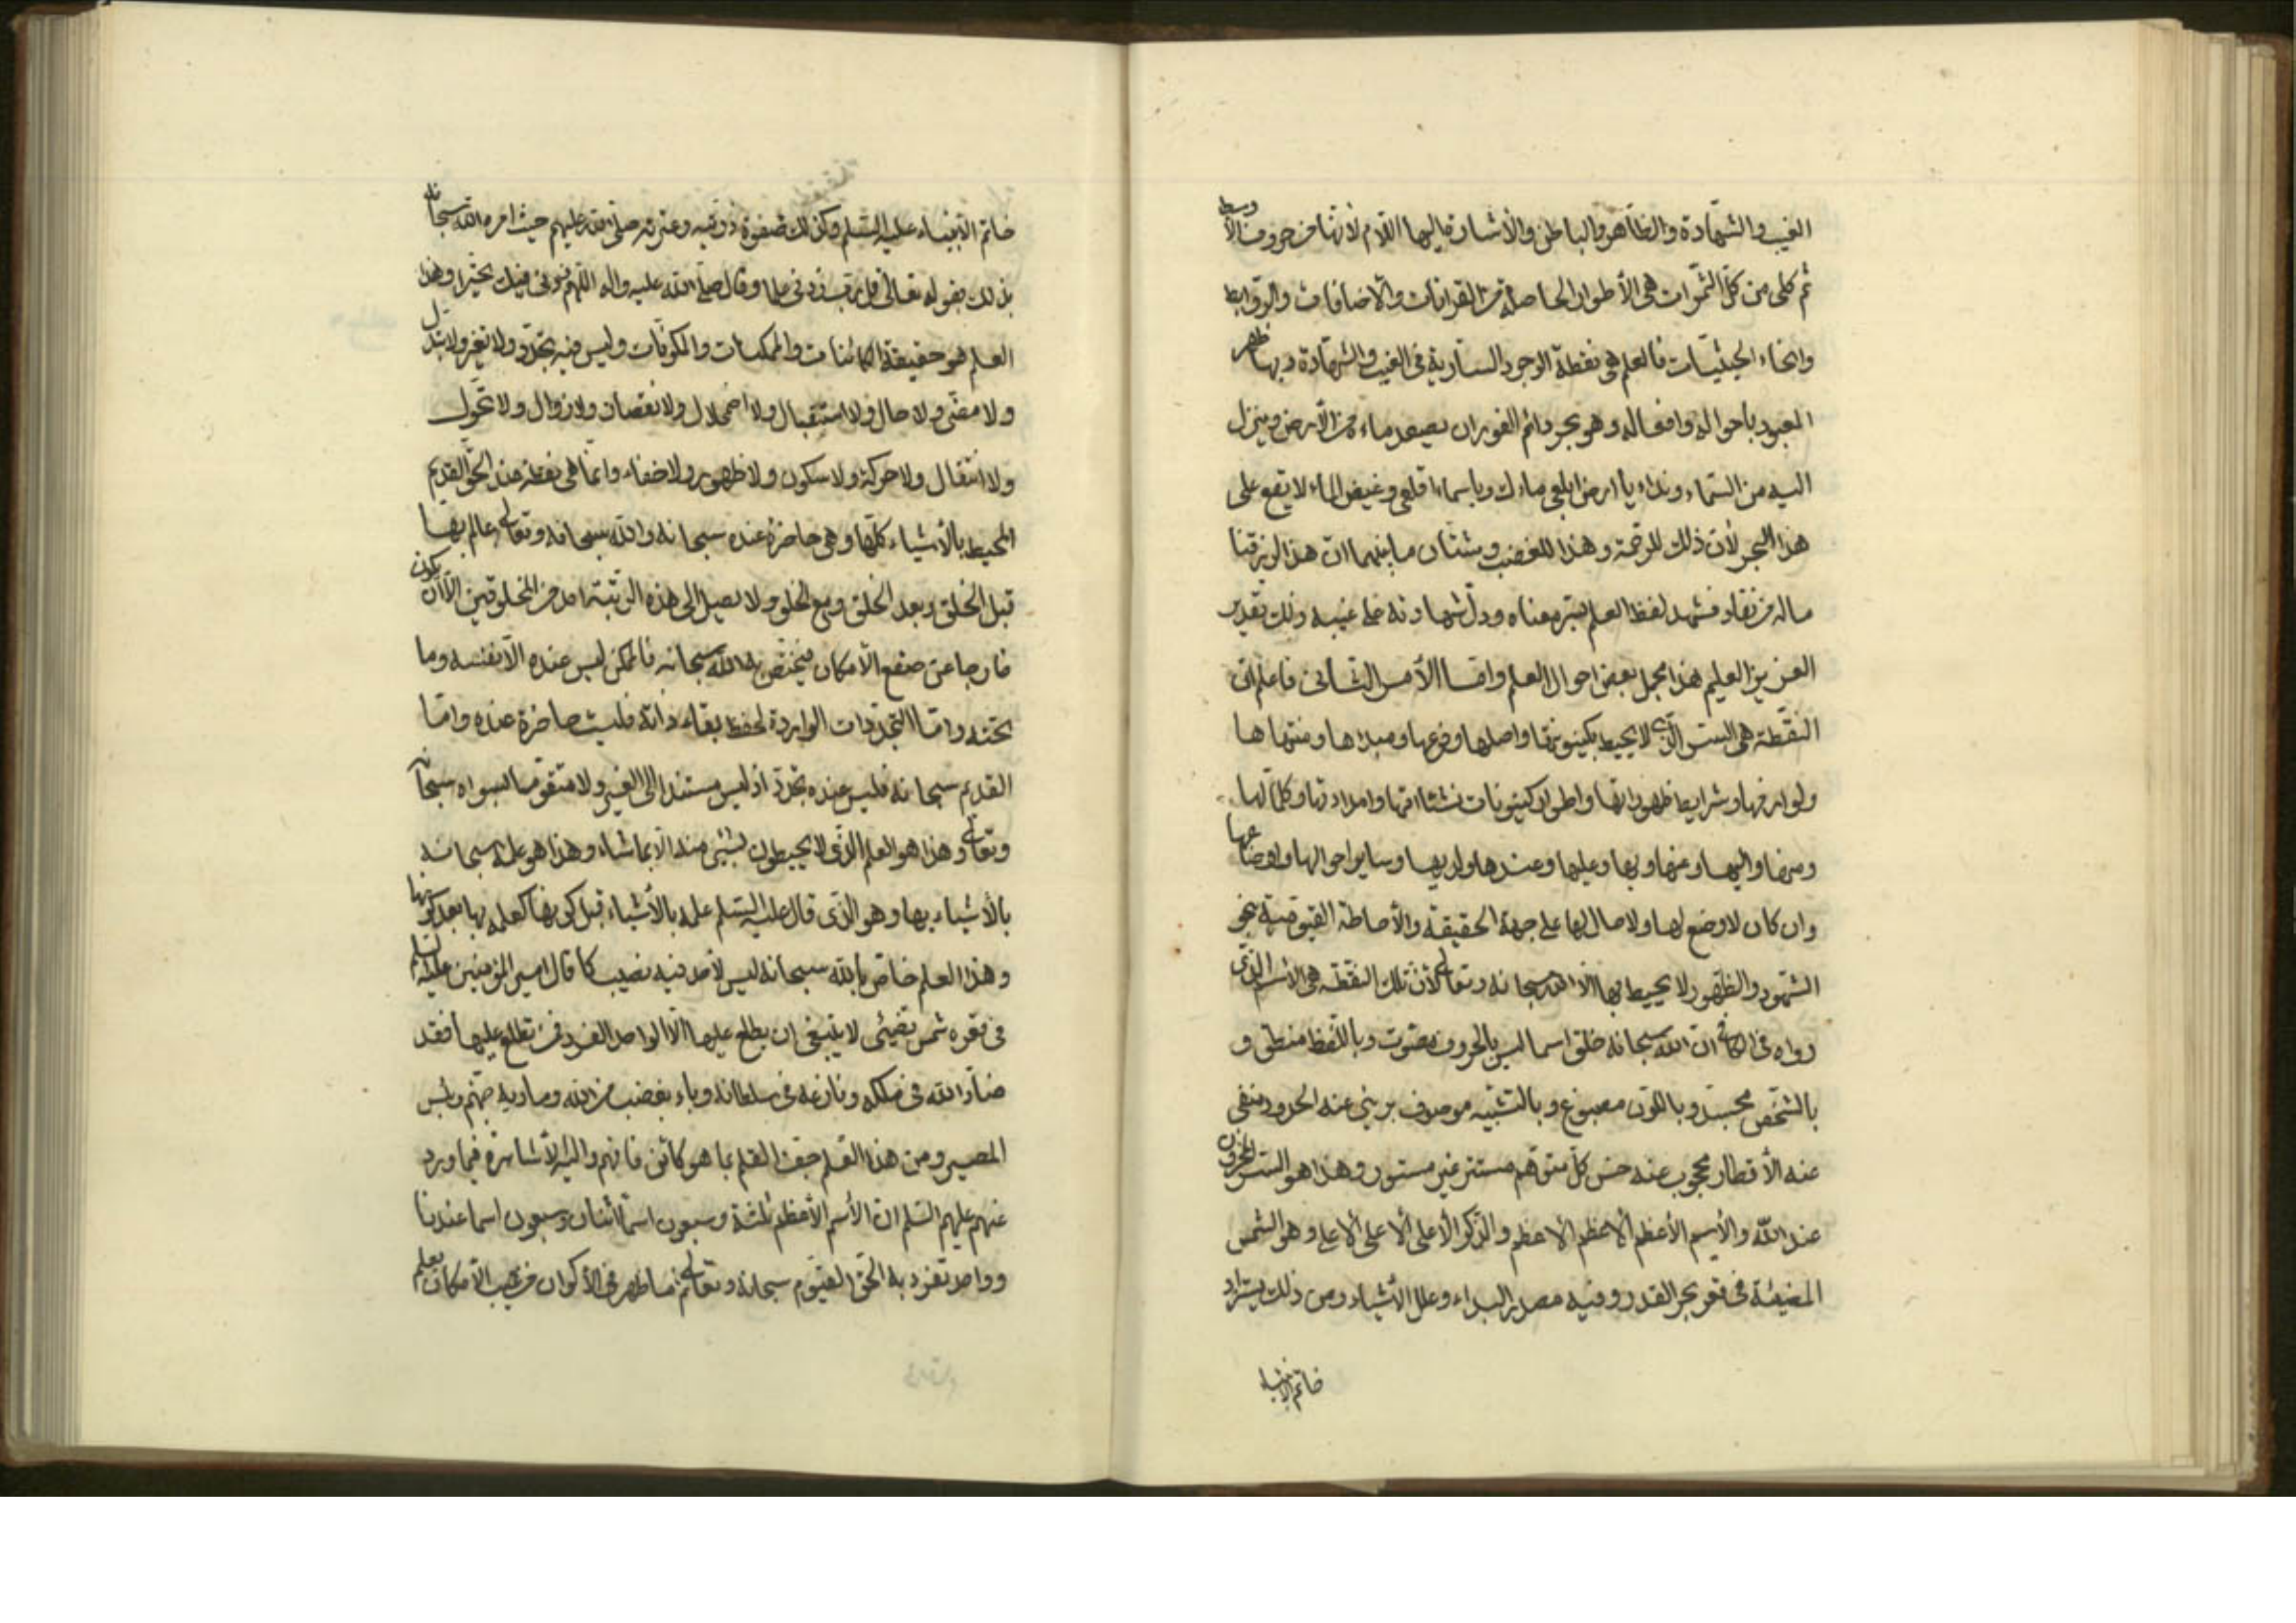 الغيب والشهادة والظاهر والباطن والأشارة اليها اللام لانها من حروف الأوسط
ثم كلى من كل الثمرات هى الأطوار الحاصلة من القرانات والاضافات والروابط
وانحاء الحيثيات فالعلم هى نقطة الوجود السارية فى الغيب والشهادة وبها ظهر
المعبود باحواله وافعاله وهو بحر دائم الفوران يصعد ماءه من الارض وينزل
اليه من السماء ونداء يا ارض ابلعى ماءك ويا سماء اقلعى وغيض الماء لا يقع على
هذا البحر لأن ذلك للرحمة وهذا للغضب وشتان ما بينهما ان هذا لرزقنا
ماله من نفاد فشهد لفظ العلم بسر معناه ودل شهادته على غيبه ذلك تقدير
العزيز العليم هذا مجمل بعض احوال العلم واما الأمر الثانى فاعلم ان
النقطة هى السر الذى لا يحيط بكينونتها واصلها وفرعها ومبدءها ومنتهاها
ولوازمها وشرايط ظهوراتها واطوار كينونات نشئاتها وامداداتها وكلما لها
ومنها واليها وعنها وبها وعليها وعندها ولديها وساير احوالها واوضاعها
وان كان لا وضع لها ولا حال لها على جهة الحقيقة والأحاطة القيومية بنحو
الشهود والظهور لا يحيط بها الا الله سبحانه وتعالى لأن تلك النقطة هى الاسم الذى
رواه فى الكافى ان الله سبحانه خلق اسما ليس بالحروف بمصوت وباللفظ منطق و
بالشخص مجسد وباللون مصبوغ وبالتشبيه موصوف برىء عنه الحدود منفى
عنه الأقطار محجوب عنه حس كل متوهم مستتر غير مستور وهذا هو السر المخزون
عند الله والأسم الأعظم الاعظم الاعظم والذكر الأعلى الاعلى الاعلى وهو الشمس
المضيئة فى قعر بحر القدر وفيه مصدر البداء وعلل الأشياء ومن ذلك يستزاد
خاتم الانبياء
خاتم الانبياء عليه السلم وكذلك صفوة ذريته وعترته صلى الله عليهم حيث امره الله سبحانه
بذلك بقوله تعالى قل رب زدنى علما وقال صلى الله عليه واله اللهم زدنى فيك تحيرا وهذا
العلم هو حقيقة الكائنات والممكنات والمكونات وليس فيه تجدد ولا تغير ولا تبدل
ولا مضى ولا حال ولا استقبال ولا اضمحلال ولا نقصان ولا زوال ولا تحول
ولا انتقال ولا حركة ولا سكون ولا ظهور ولا خفاء وانما هى نقطة عند الحق القديم
المحيط بالأشياء كلها وهى حاضرة عنده سبحانه والله سبحانه وتعالى عالم بها
قبل الخلق وبعد الخلق ومع الخلق ولا يصل الى هذه الرتبة احد من المخلوقين الا ان يكون
خارجا عن صقع الامكان فيختص بالله سبحانه فالممكن ليس عنده الا نفسه وما
تحته واما التجددات الواردة لحفظ بقاء ذاته فليست حاضرة عنده واما
القديم سبحانه فليس عنده تجدد اذ ليس مستندا الى الغير ولا متقوما بسواه سبحانه
وتعالى وهذا هو العلم الذى لا يحيطون بشىء منه الا بما شاء وهذا هو علمه سبحانه
بالأشياء بها وهو الذى قال عليه السلم علمه بالأشياء قبل كونها كعلمه بها بعد كونها
وهذا العلم خاص بالله سبحانه ليس لأحد فيه نصيب كما قال امير المؤمنين عليه السلم
فى قعره شمس تضيئى لا ينبغى ان يطلع عليها الا الواحد الفرد فمن تطلع عليها فقد
ضاد الله فى ملكه ونازعه فى سلطانه وباء بغضب من الله وماويه جهنم وبئس
المصير ومن هذا القلم جف القلم بما هو كائن فافهم واليه الاشارة فيما ورد
عنهم عليهم السلم ان الأسم الأعظم ثلثة وسبعون اسما اثنان وسبعون اسما عندنا
وواحد تفرد به الحق القيوم سبحانه وتعالى ثم ما ظهر فى الأكوان من غيب الامكان بعلم